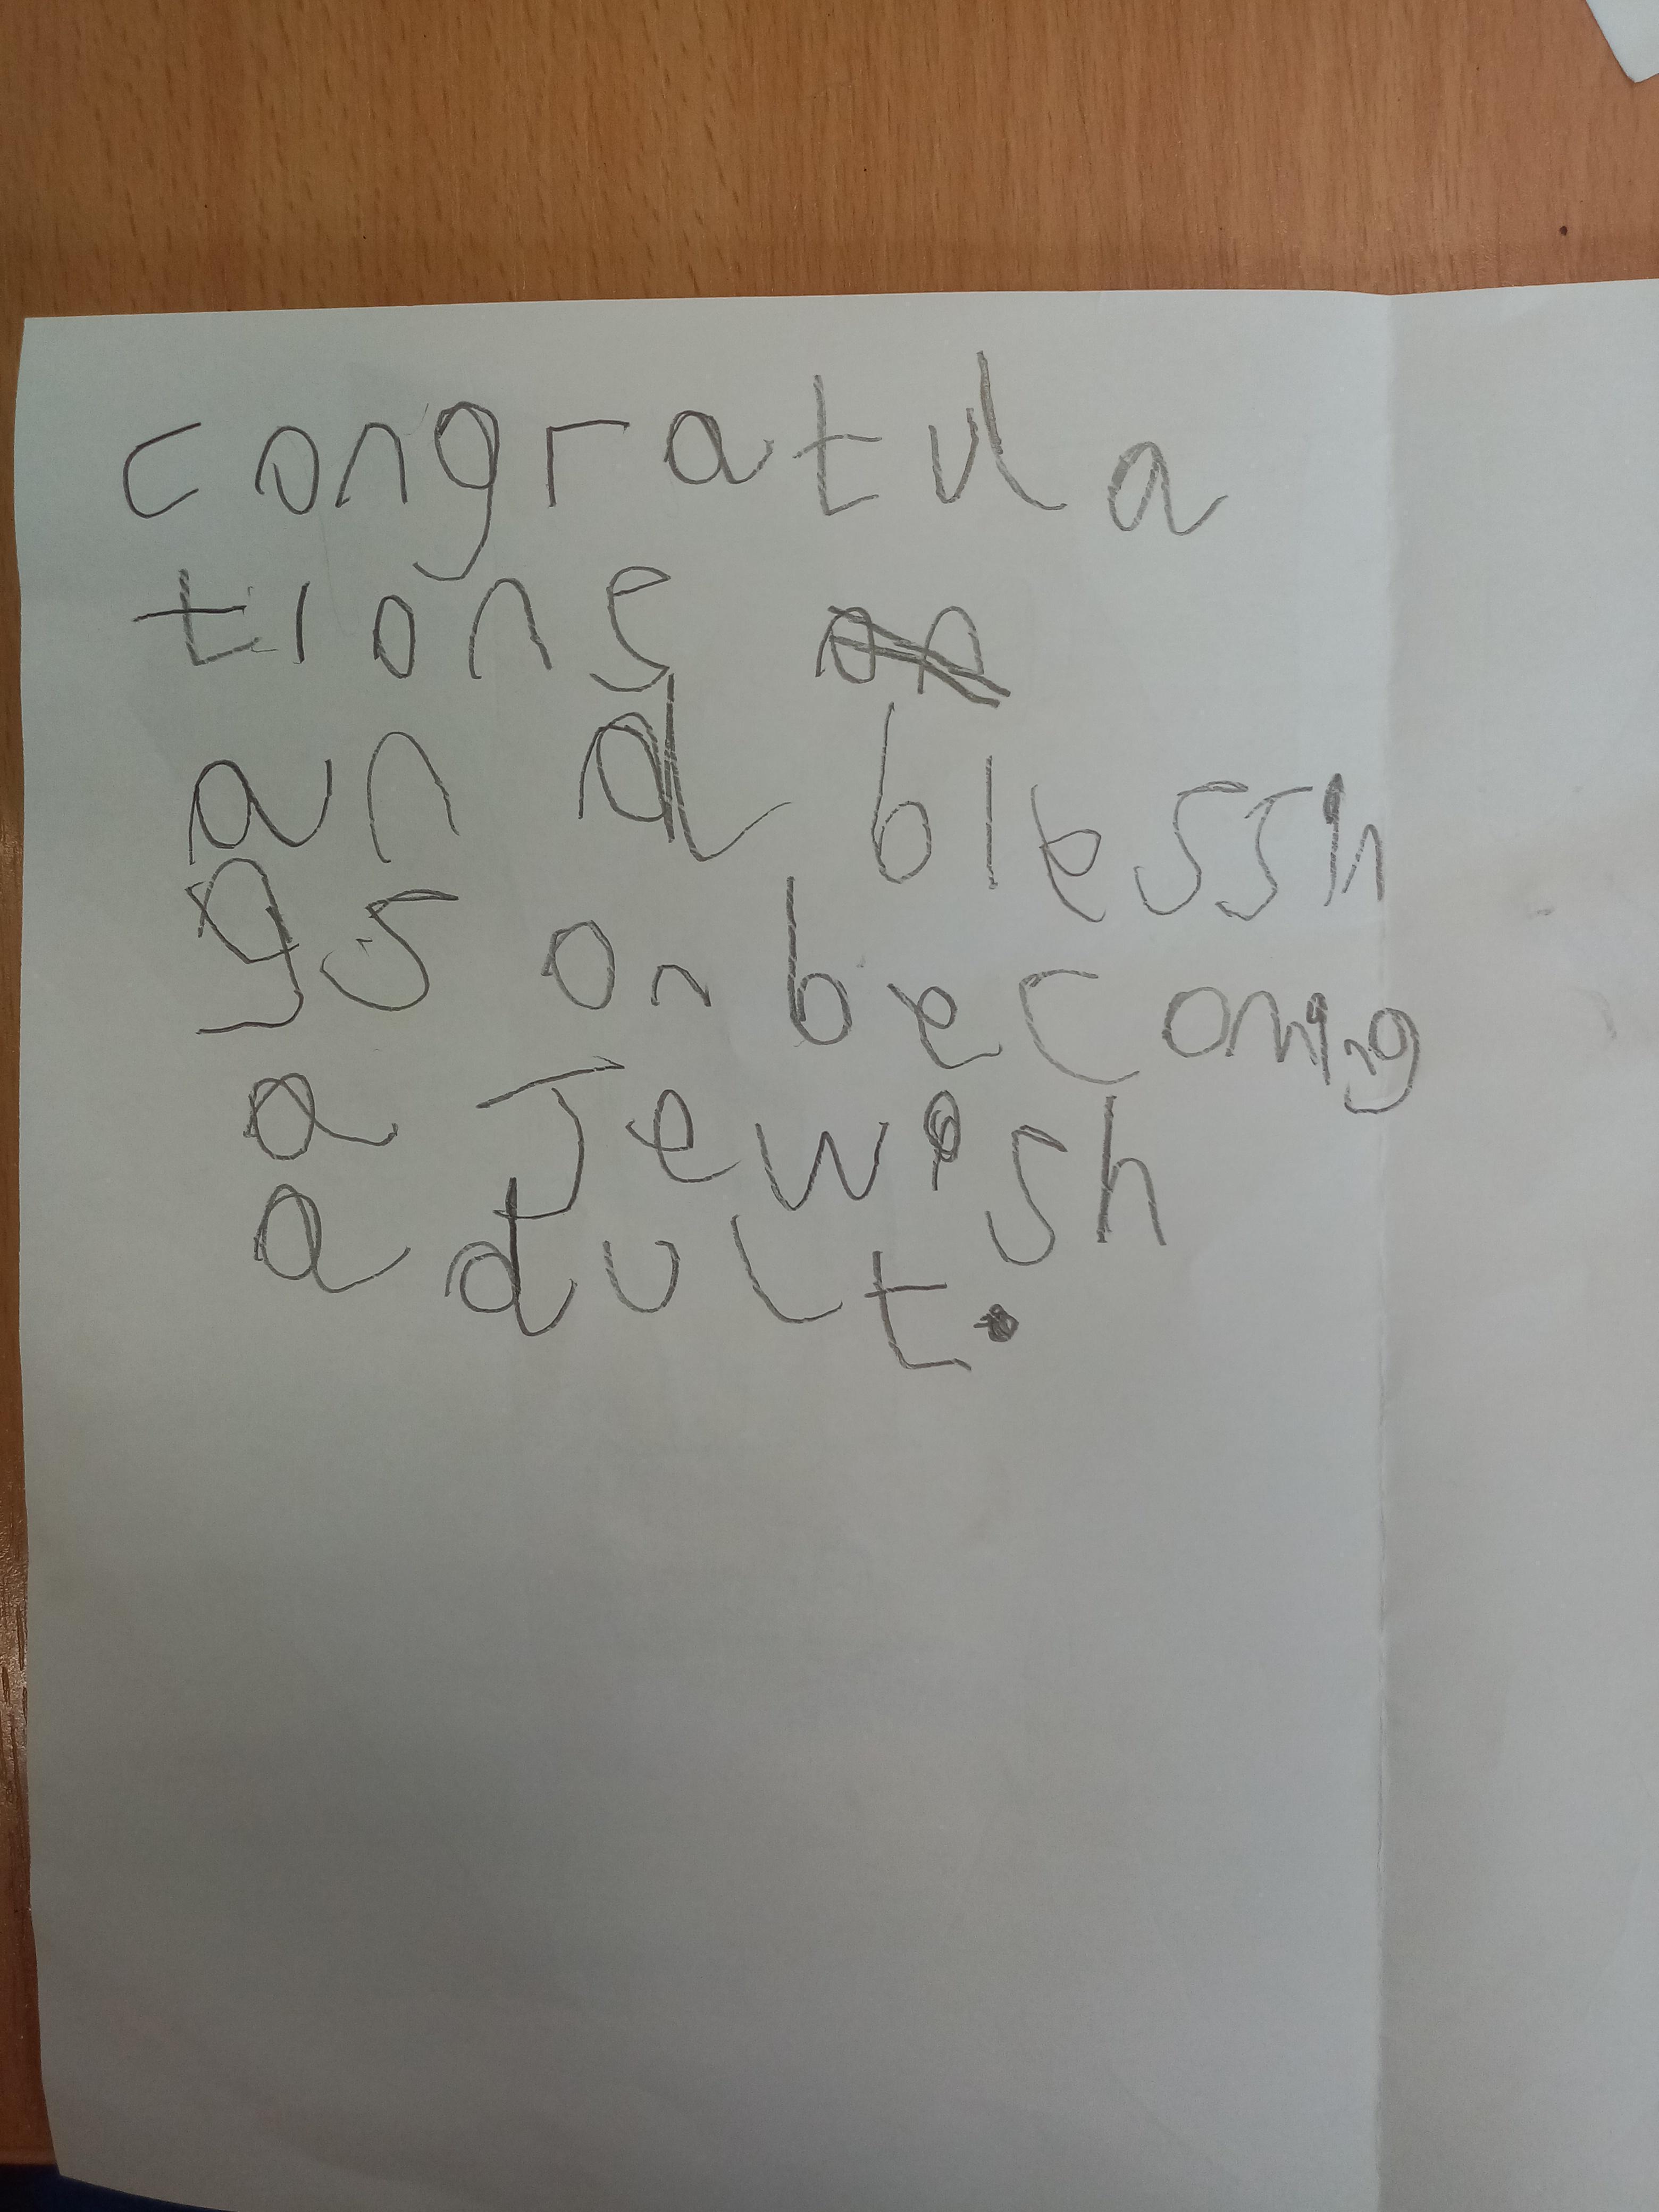 congratula
tions
and blessin
gs on becoming
a Jewish
adult.